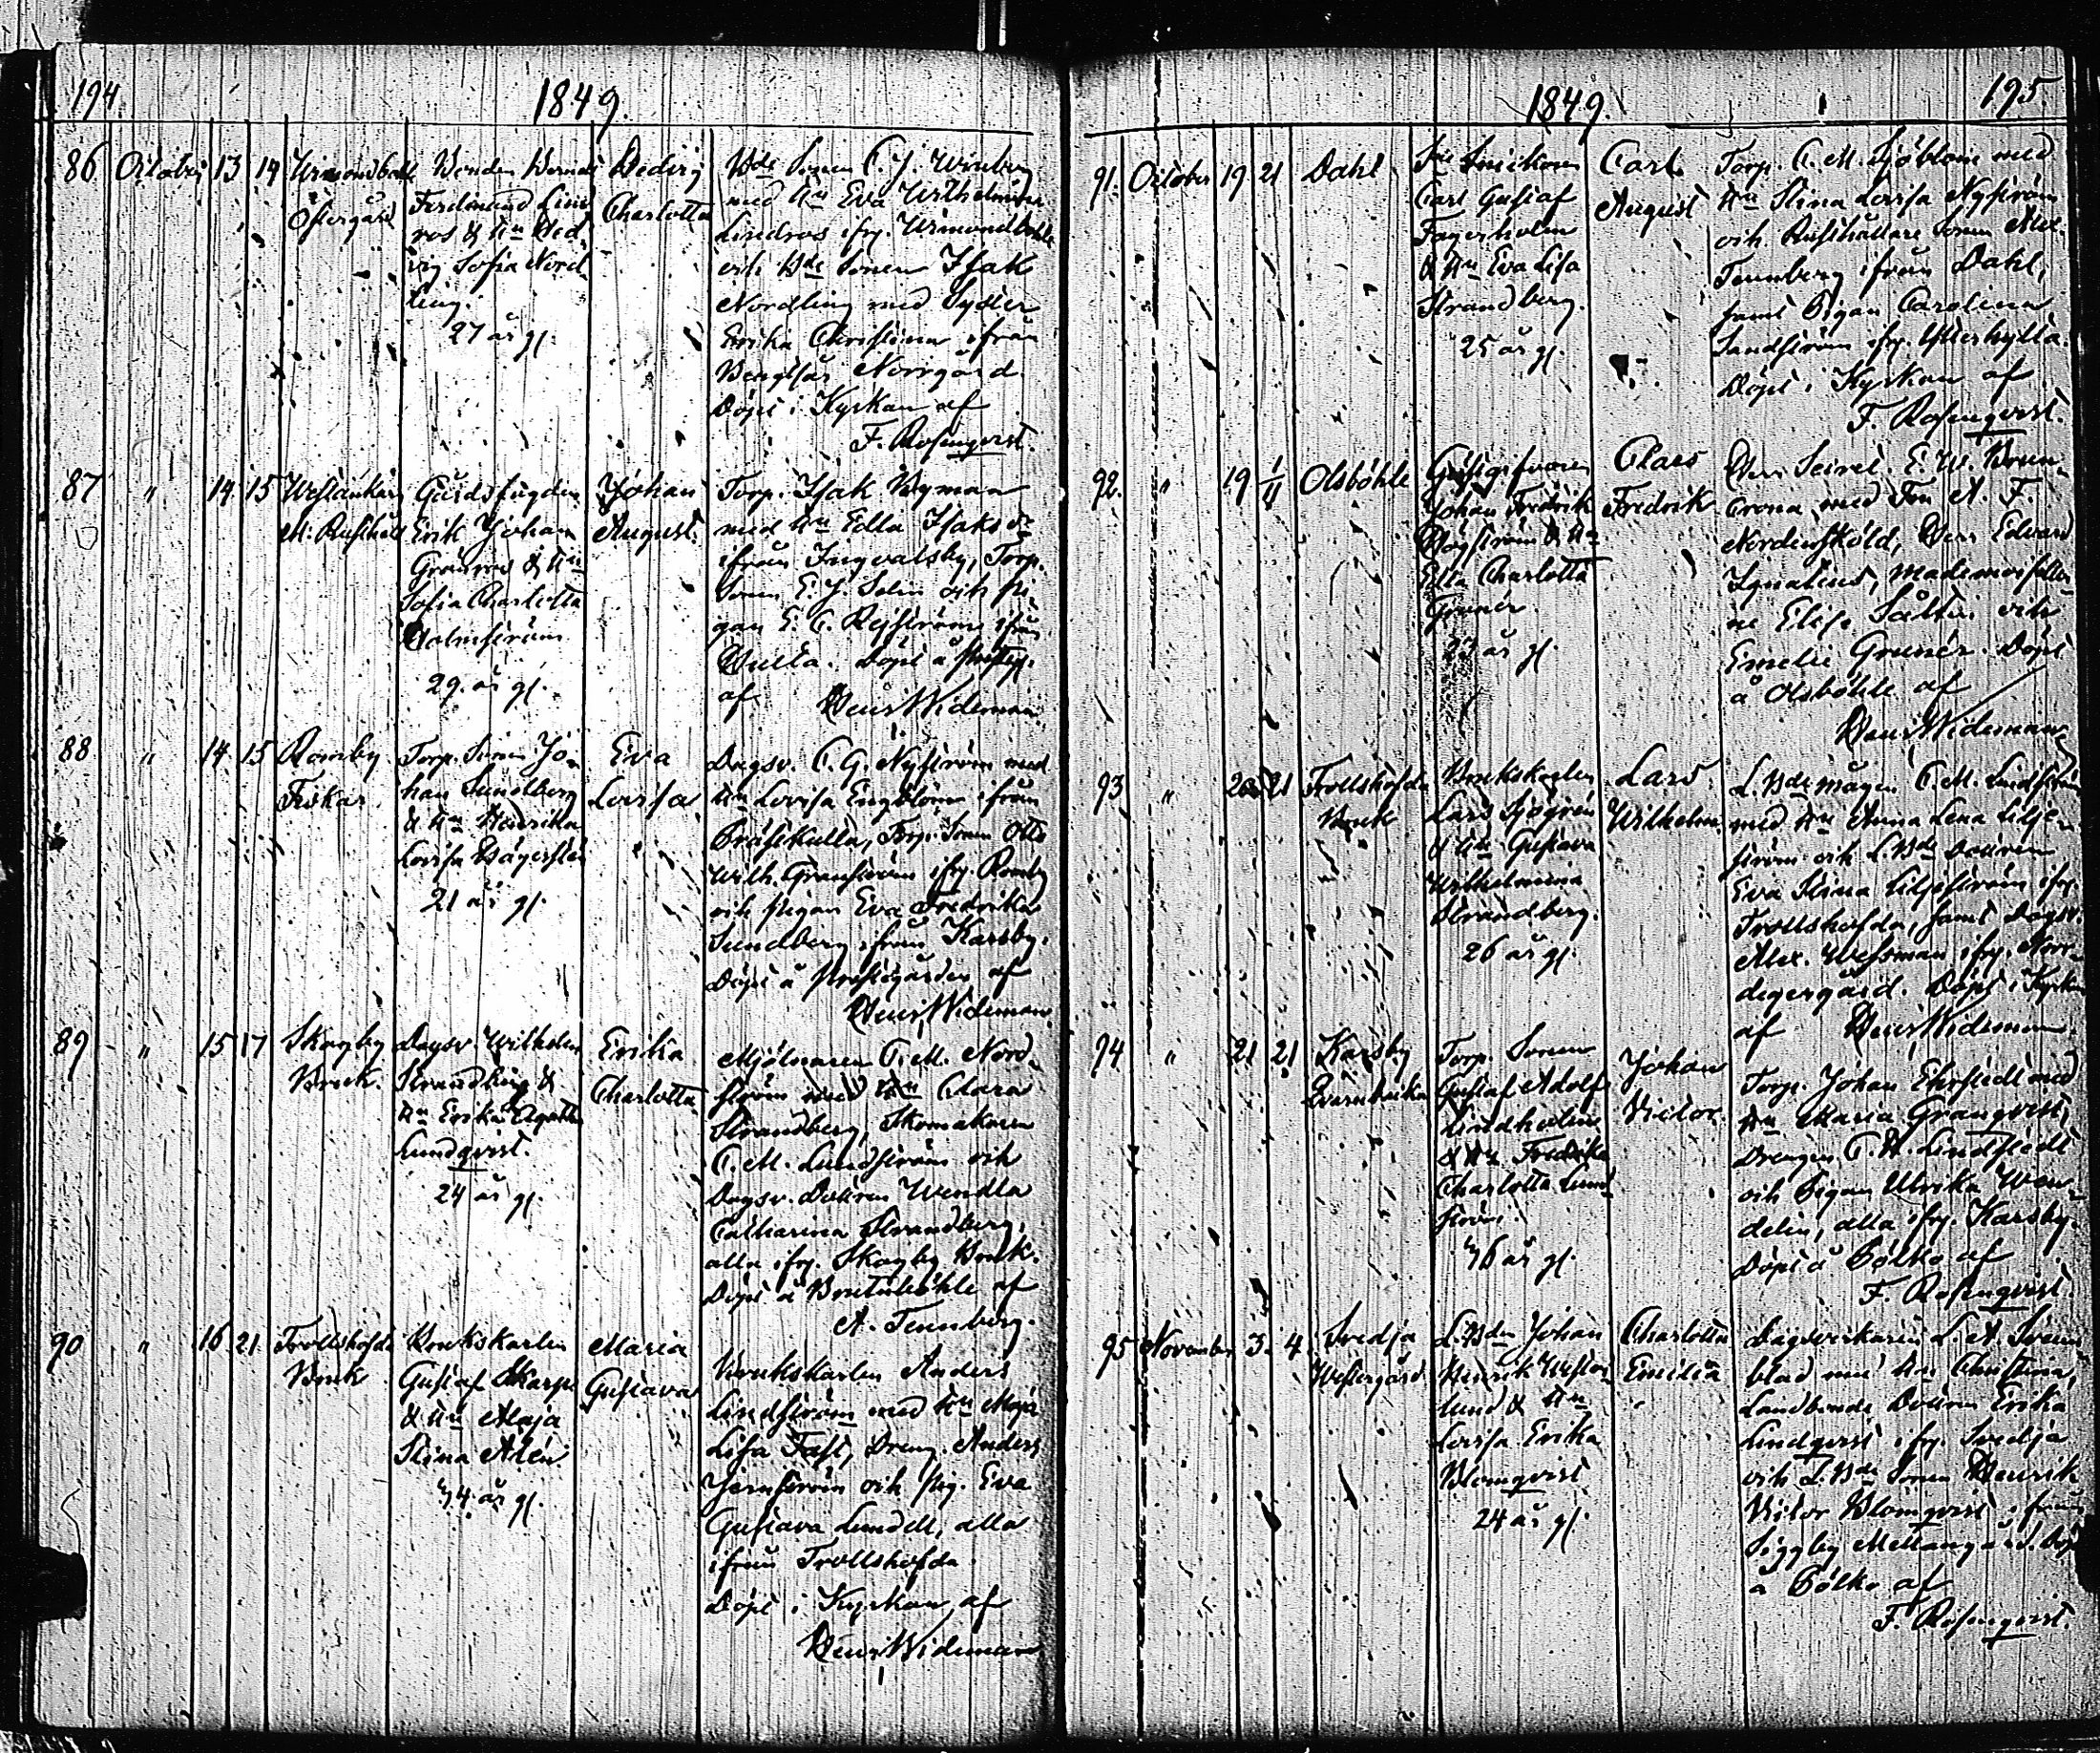 194
1849.
86 October 13 14 Urmondböhle Östergård
Bonden Berndt
Ferdinand Lind-
ros & Hu Hed-
vig Sofia Nord-
ling.
27 år gl.
Hedvig
Charlotta
Bde Sonen C. J. Winberg
med Hu Eva Wilhelmina
Lindros ifr. Urmondböhle
och Bde Sonen Isak
Nordling med Syster
Erika Christina ifrån
Bengtsår Norrgård.
Döpt i Kyrkan af
F. Rosenqvist.
87 " 14 15 Westankärr
M. Rusthåll
Gårdsfogden
Erik Johan
Granros & Hu
Sofia Charlotta
Holmström
29 år gl.
Johan
August.
Torp. Isak Nyman
med Hu Edla Isaks dr
ifrån Ingvalsby, Torp.
Sonen E. J. Selin och pi-
gan E. C. Rejström ifrån
Hulta. Döpt å prästg.
af Henr. Wideman.
88 " 14 15 Romby
Fiskar
Torp. Sonen Jo-
han Sundberg
& Hu Henrika
Lovisa Hägerstén
21 år gl.
Eva
Lovisa
Dagsv. C. G. Nyström med
Hu Lovisa Engblom ifrån
Präskulla, Torp. Sonen Otto
Wilh. Granström ifr. Romby
och pigan Eva Fredrika
Sundberg ifrån Karsby.
Döpt å prästgården af
Henr. Wideman.
89 " 15 17 Skogby
Bruk.
Dagsv. Wilhelm
Strandberg &
Hu Erika Agatha
Lundqvist.
24 år gl.
Erika
Charlotta
Mjölnaren C. M. Nord-
ström med Hu Clara
Strandberg, Skomakaren
C. M. Lundström och
Dagsv. Dottren Wendla
Catharina Strandberg,
alla ifr. Skogby Bruk.
Döpt å Brutuböhle af
A. Tennberg.
90 " 16 21 Trollshofda
Bruk
Brukskarlen
Gustaf Skarp
& Hu Maja
Stina Alén
34 år gl.
Maria
Gustava
Brukskarlen Anders
Lindström med Hu Maja
Lisa Fast, Dreng. Anders
Jernström och pig. Eva
Gustava Lundell, alla
ifrån Trollshofda.
Döpt i Kyrkan af
Henr. Wideman
195
1849.
91. October 19 21 Dahl
Carl Gustaf
Fagerholm
& Hu Eva Lisa
Strandberg.
25 år gl.
Carl
August
Torp. C. M. Sjöblom med
Hu Stina Lovisa Nyström
och Rusthållare Sonen Alex.
Tennberg ifrån Dahl,
samt Pigan Carolina
Sandström ifr. Ytterhylta.
Döpt i Kyrkan af
F. Rosenqvist.
92. " 19 1/11 Olsböhle
Gästgifvaren
Johan Fredrik
Högström & Hu
Edla Charlotta
Grunér.
år gl.
Claes
Fredrik
Herr Secret. E. W. Brun-
crona med Fru A. F.
Nordensköld, Herr Edvard
Ignatius, Mademoiseller-
ne Elise Sältin och
Emelie Grunér. Döpt
å Olsböhle af
Henr. Wideman
93 " 20 21 Trollshofda
Bruk
Brukskarlen
Lars Sjögrén
& Hu Gustava
Wilhelmina
Strandberg.
26 år gl.
Lars
Wilhelm.
L. Bde mågen C. M. Lindström
med Hu Anna Lena Lilje-
ström och L. Bde Dottren
Eva Stina Liljeström ifr.
Trollshofda, samt Dagsv.
Alex. Wessman ifr. Norr-
degergård. Döpt i Kyrkan
af Henr. Wideman.
94 " 21 21 Karsby
Qvarnbacka
Torp. Sonen
Gustaf Adolf
Lindholm
& Hu Fredrika
Charlotta Lund-
ström.
36 år gl.
Johan
Victor
Torp. Johan Ehrstedt med
Hu Maria Granqvist,
Drengen C. A. Lindstedt
och Pigan Ulrika Wen-
delin, alla ifr. Karsby.
Döpt å Bölho af
F. Rosenqvist
95 November 3. 4. Svedja
Westergård
L. Bdn Johan
Henrik Wester-
lund & Hu
Lovisa Erika
Blomqvist
24 år gl.
Charlotta
Emilia
Dagsverkaren L. A. Svenn-
blad med Hu Christina,
Landbonde Dottren Erika
Lindqvist ifr. Svedja
och L. Bde Sonen Henrik
Victor Blomqvist ifrån
Siggby Mellangård. Döpt
å Bölho af
F. Rosenqvist.